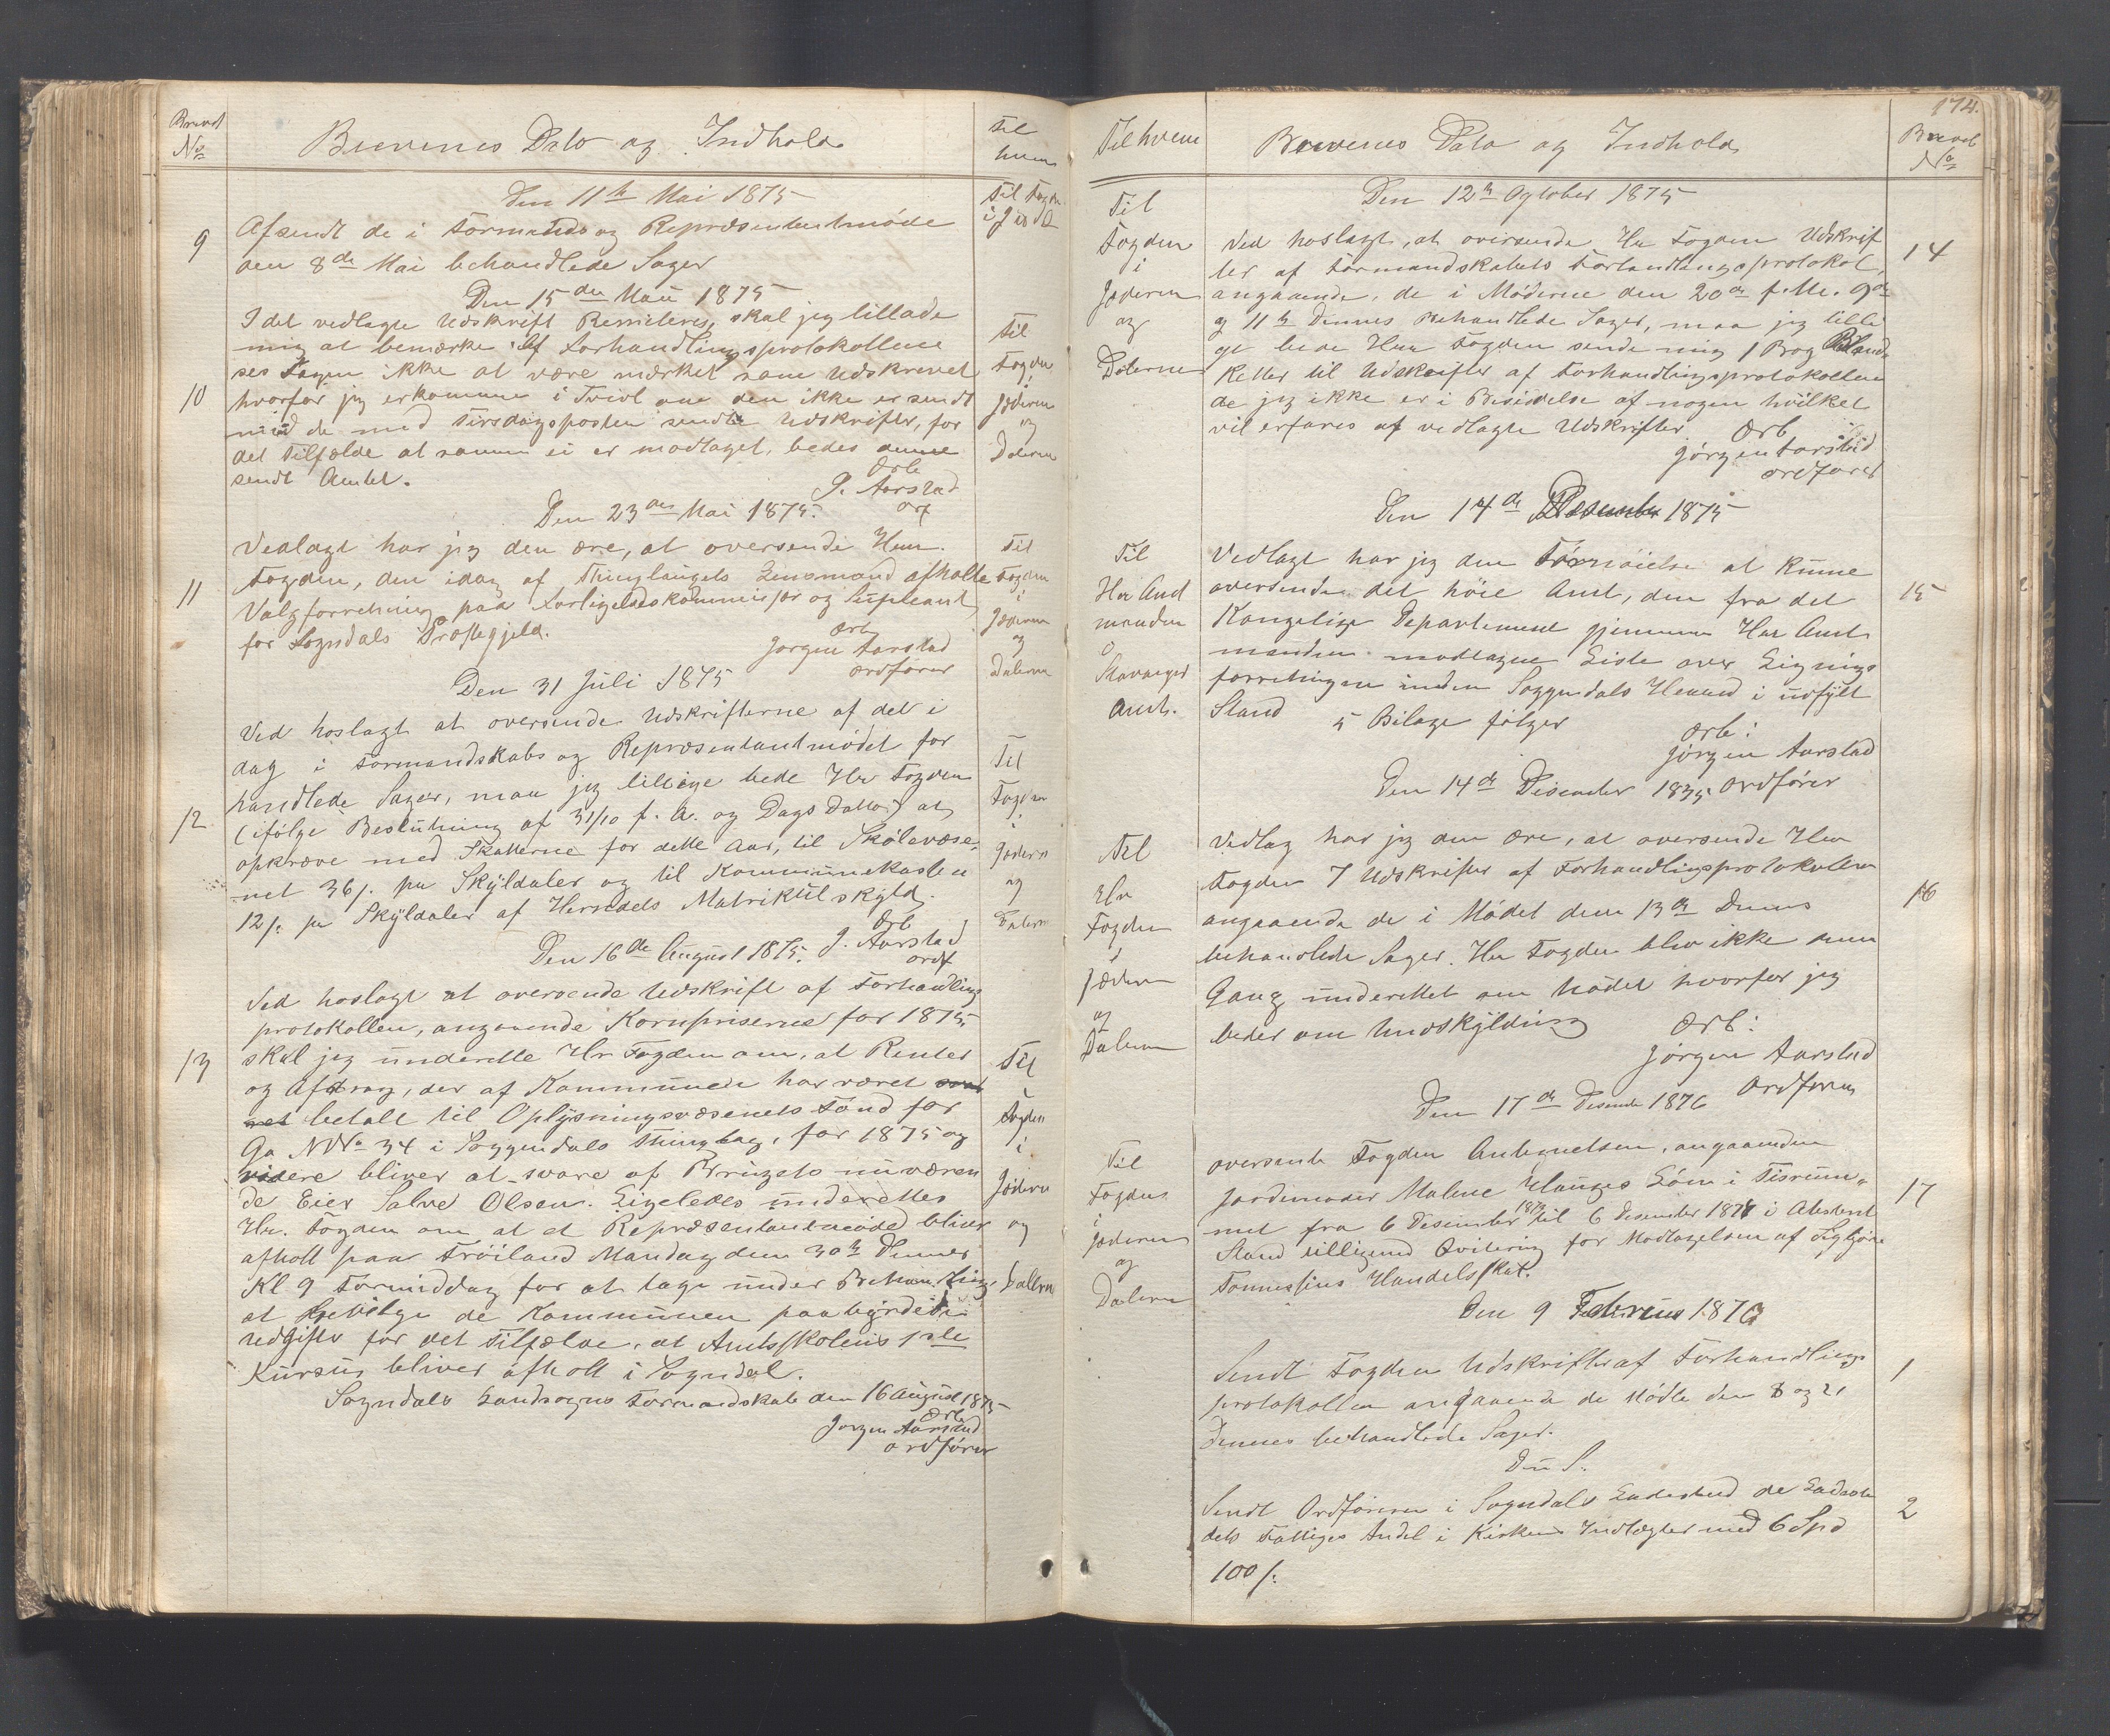 Brevets
No
Brevenes Dato og Indhold
til
hvem
Den 11te Mai 1875
Til Fogden
i J og D
9
Afsendt de i Formands og Repræsentantmøde
den 8de Mai behandlede Sager
Den 15den Mai 1875
I det vedlagte Udskrift Remiteres, skal jeg tillade
mig at bemærke: Af Forhandlingsprotokollene
sees Sagen ikke at være mærket som Udskrevet
10
hvorfor jeg er kommen i Tvivl om den ikke er sendt
med de med Tirsdagsposten sendte Udskrifter, for
det Tilfælde at samme ei er modtaget, bedes denne
sendt Amtet.
Ærb
J. Aarstad
Orf
Til
Fogden
i
Jæderen
og
Dalerne
Den 23de Mai 1875.
Vedlagt har jeg den ære, at oversende Herr
11
Fogden, den idag af Thinglaugets Lensmand afholte
Valgforretning paa Forligelseskommisær og Supleant
for Sogndals Præstegjeld.
Ærb
Jørgen Aarstad
ordfører
Til
Fogden
i
Jæderen
og
Dalerne
Den 31 Juli 1875
Ved hoslagt at oversende Udskrifterne af det i
dag i Formandskabs og Repræsentantmødet for
handlede Sager, maa jeg tillige bede Hr Fogden
12
(ifølge Beslutning af 31/10 f. A. og Dags Datto) at
opkræve med Skatterne for dette Aar, til Skolevæse-
net 36 s. pr Skyldaler og til Kommunekassen
12 s. pr Skyldaler af Herredets Matrikulskyld.
Ærb
J. Aarstad
Ordf
Til
Fogden
i
Jæderen
og
Dalerne
Den 16de August 1875.
Ved hoslagt at oversende Udskrift af Forhandlings
protokollen, angaaende Kornpriserne for 1875,
13
skal jeg underette Hr Fogden om, at Renter
og Afdrag, der af Kommunen har været
betalt til Oplysningsvæsenets Fond for
Ga No 34 i Soggendals Thinglag, for 1875 og
videre bliver at svare af Brugets nuværen
de Eier Salve Olsen. Ligeledes underettes
Hr. Fogden om at et Repræsentantmøde bliver
afholt paa Frøiland Mandag den 30te Dennes
Kl 9 Formiddag for at tage under Behandling
at bevilge de Kommunen paabyrdede
Udgifte for det Tilfælde, at Amtsskolens 1ste
Kursus bliver afholt i Sogndal.
Sogndals Landsogns Formandskab den 16 August 1875
Ærb
Jørgen Aarstad
ordfører
Til
i
Fogden
i
Jæderen
og
Dalerne
174.
Til hvem
Brevenes Dato og Indhold
Brevets
No
Den 12te Oktober 1875
Til
Fogden
i
Jæderen
og
Dalerne
Ved hoslagt, at oversende Hr Fogden Udskrif
14
ter af Formandskabets Forhandlingsprotokol,
angaaende, de i Møderne den 20de f. M. 9de
og 11te Dennes behandlede Sager, maa jeg tilli
ge bede Herr Fogden sende mig 1 Bog Blan
ketter til Udskrifter af Forhandlingsprotokollen
de jeg ikke er i Besidelse af nogen hvilket
vil erfares af vedlagte Udskrifter
Ærb
Jørgen Aarstad
ordfører
Den 14de Desember 1875
Til
Hr Amt
manden
i
Stavanger
Amt.
Vedlagt har jeg den Fornøielse at kune
15
oversende det høie Amt, den fra det
Kongelige Departement gjennem Herr Amt
manden modtagne Liste over Lignings
forretningen inden Soggendals Herred i udfylt
Stand
5 Bilage følger
Ærb:
Jørgen Aarstad
Ordfører
Den 14de Desember 1875
Til
Hr
Fogden
i
Jæderen
og
Dalerne
Vedlag har jeg den ære, at oversende Herr
Fogden 7 Udskrifter af Forhandlingsprotokollen
16
angaaende de i Mødet den 13de Dennes
behandlede Sager. Hr Fogden blev ikke denne
Gang underettet om Mødet hvorfor jeg
beder om Undskyldning
Ærb:
Jørgen Aarstad
Ordføren
Den 17de Desember 1876
Til
Fogden
i
Jæderen
og
Dalerne
oversente Fogden Antegnelsen, angaaenden
Jordemoder Malene Hauges Løn i Tisrum-
17
met fra 6 Desember 1873 til 6 Desember 1878 i Atesteret
Stand tilligemed Qvitering for Modtagelsen af
Tønnessens Handelsskat.
Den 9 Februar 1876
Sendt Fogden Udskrifter af Forhandlings
1
protokollen angaaende de Mødte den 8 og 21
Dennes behandlede Sager.
Du S.
Sendt Ordføreren i Sogndals Ladested de Ladeste
2
dets Fattiges Andel i Kirkens Indtægter med 6 Spd
100 s.